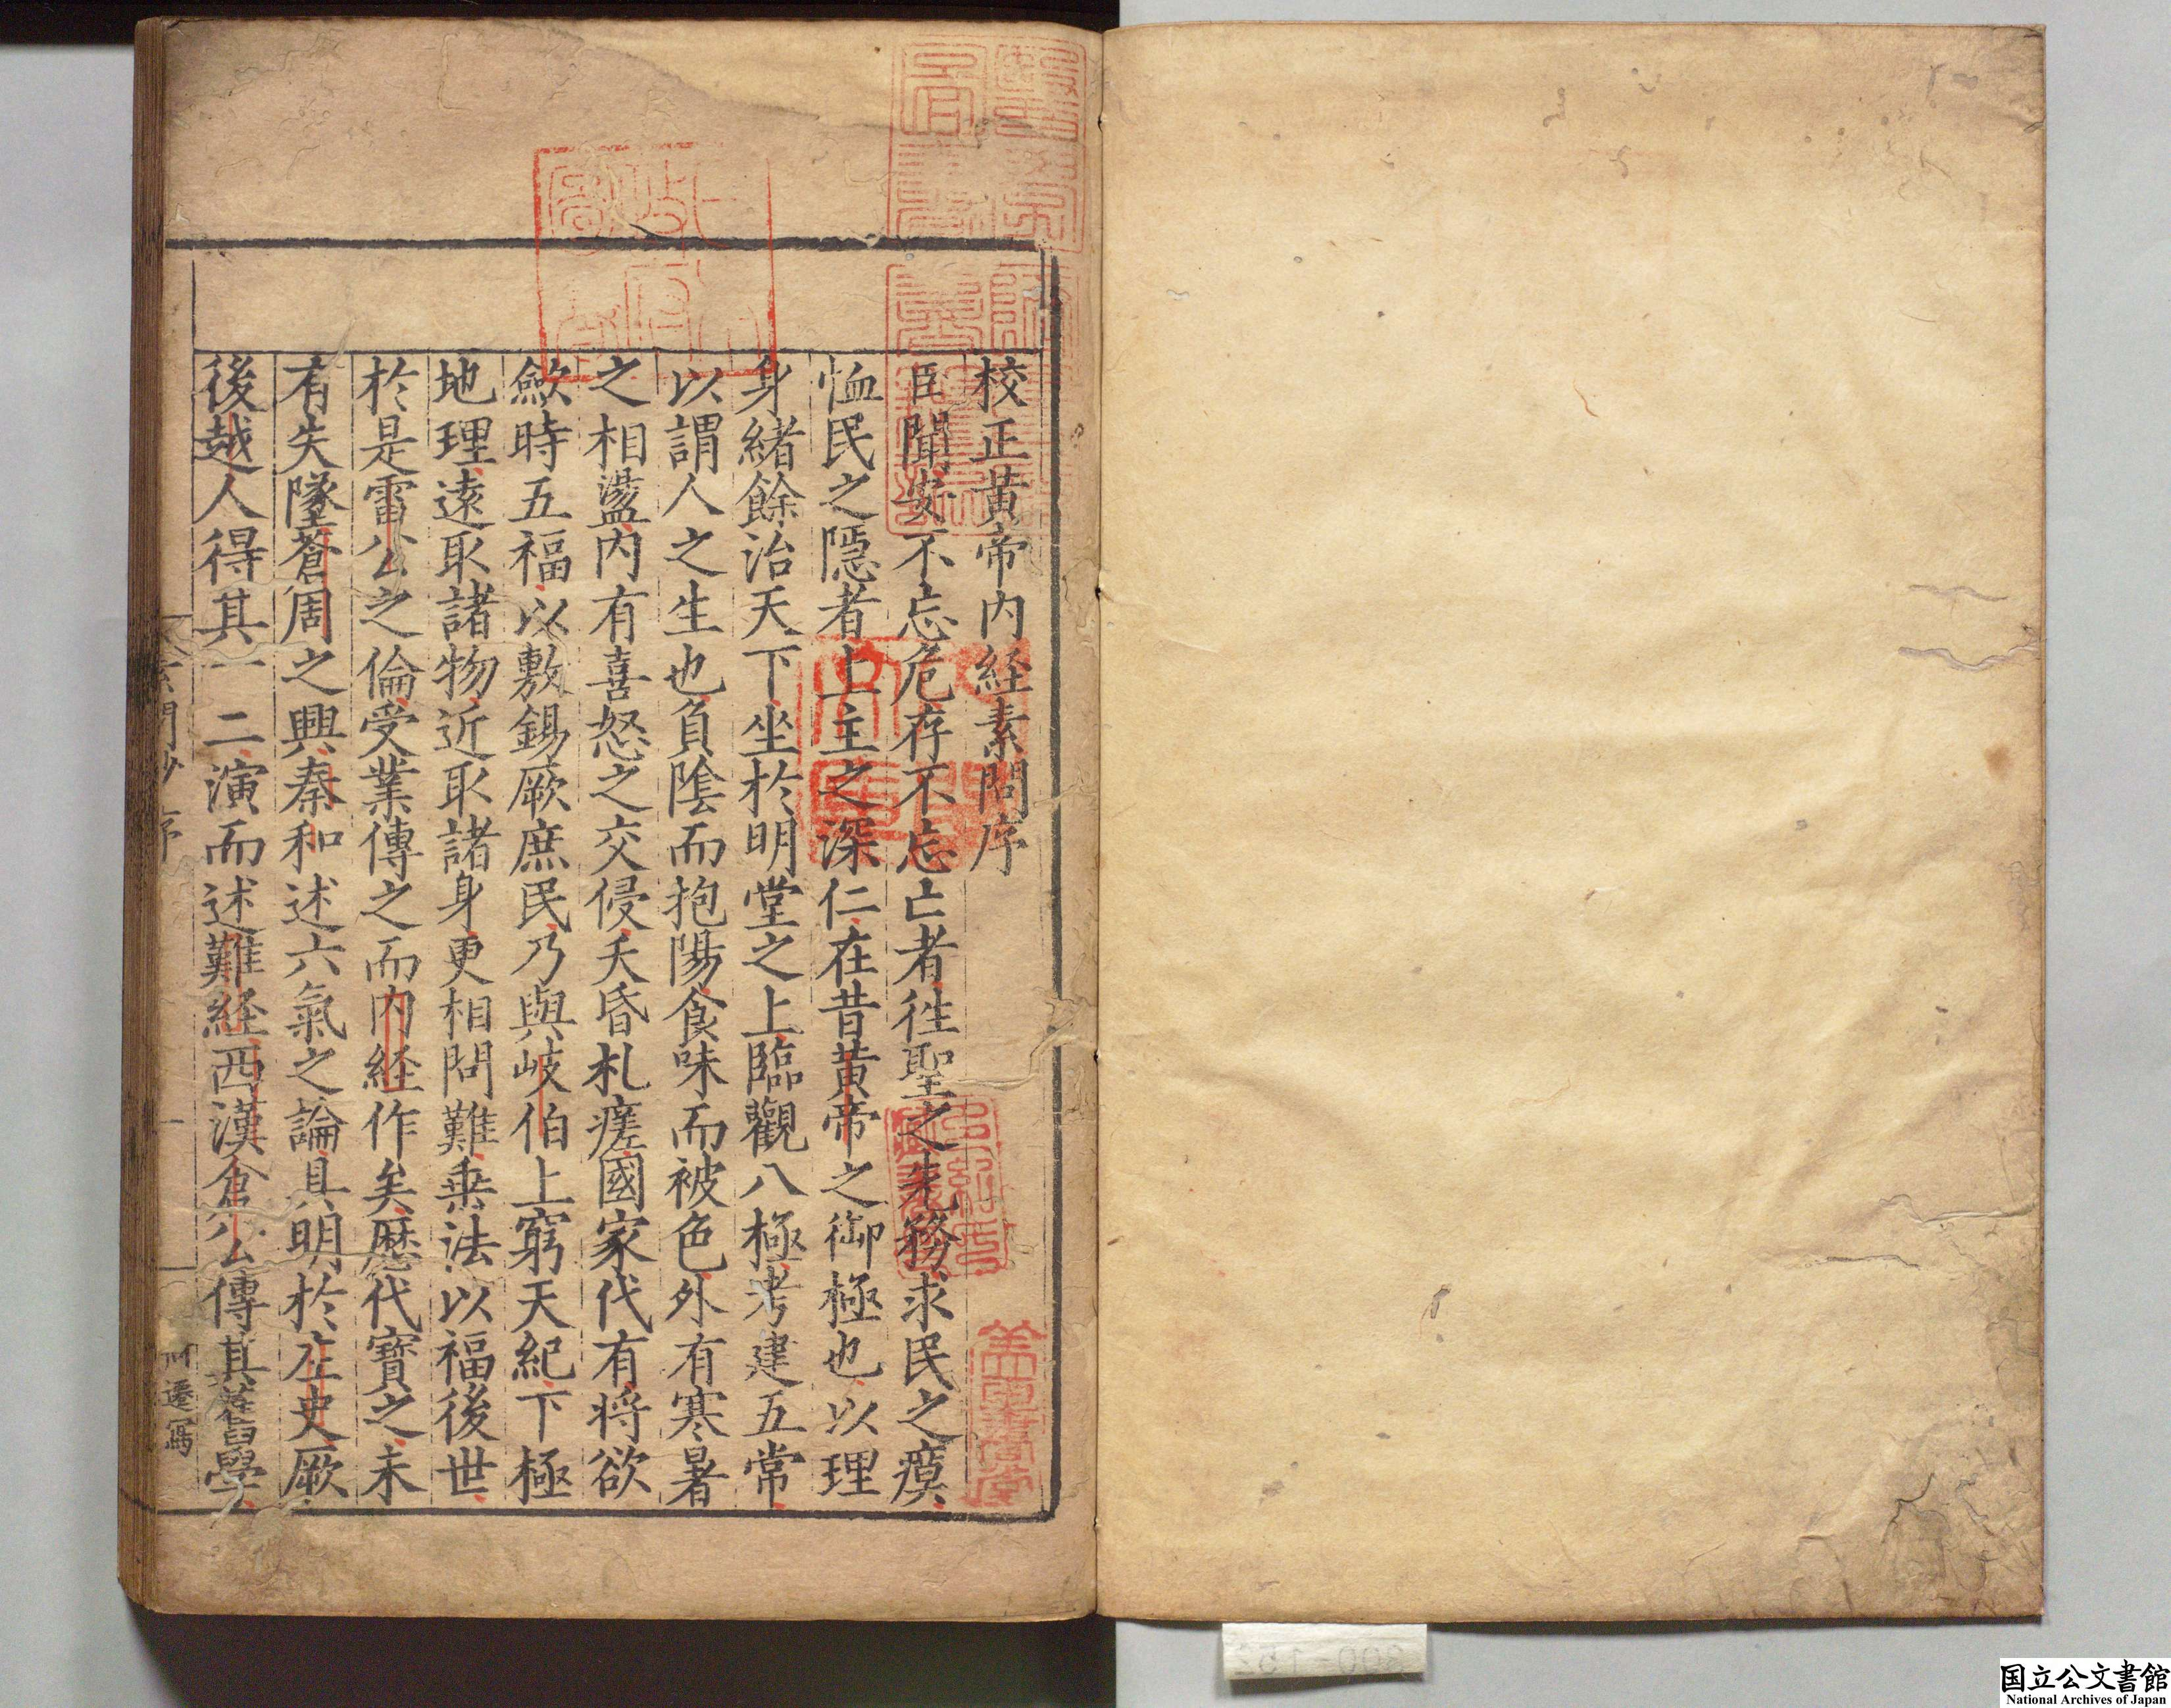 校正黃帝内経素問序
臣聞安不忘危存不忘亡者徃聖之先務求民之瘼
恤民之隱者上主之深仁在昔黄帝之御極也以理
身緒餘治天下坐於明堂之上臨觀八極考建五常
以謂人之生也負陰而抱陽食味而被色外有寒暑
之相盪内有喜怒之交侵夭昏札瘥國家代有将欲
歛時五福以敷錫厥庶民乃與岐伯上窮天紀下極
地理遠取諸物近取諸身更相問難垂法以福後世
於是雷公之倫受業傳之而内経作矣歴代寳之未
有失墜蒼周之興秦和述六氣之論具明於左史厥
後越人得其一二演而述難経西漢倉公傳其舊學
序
一
遷寫
国立公文書館
National Archives of Japan